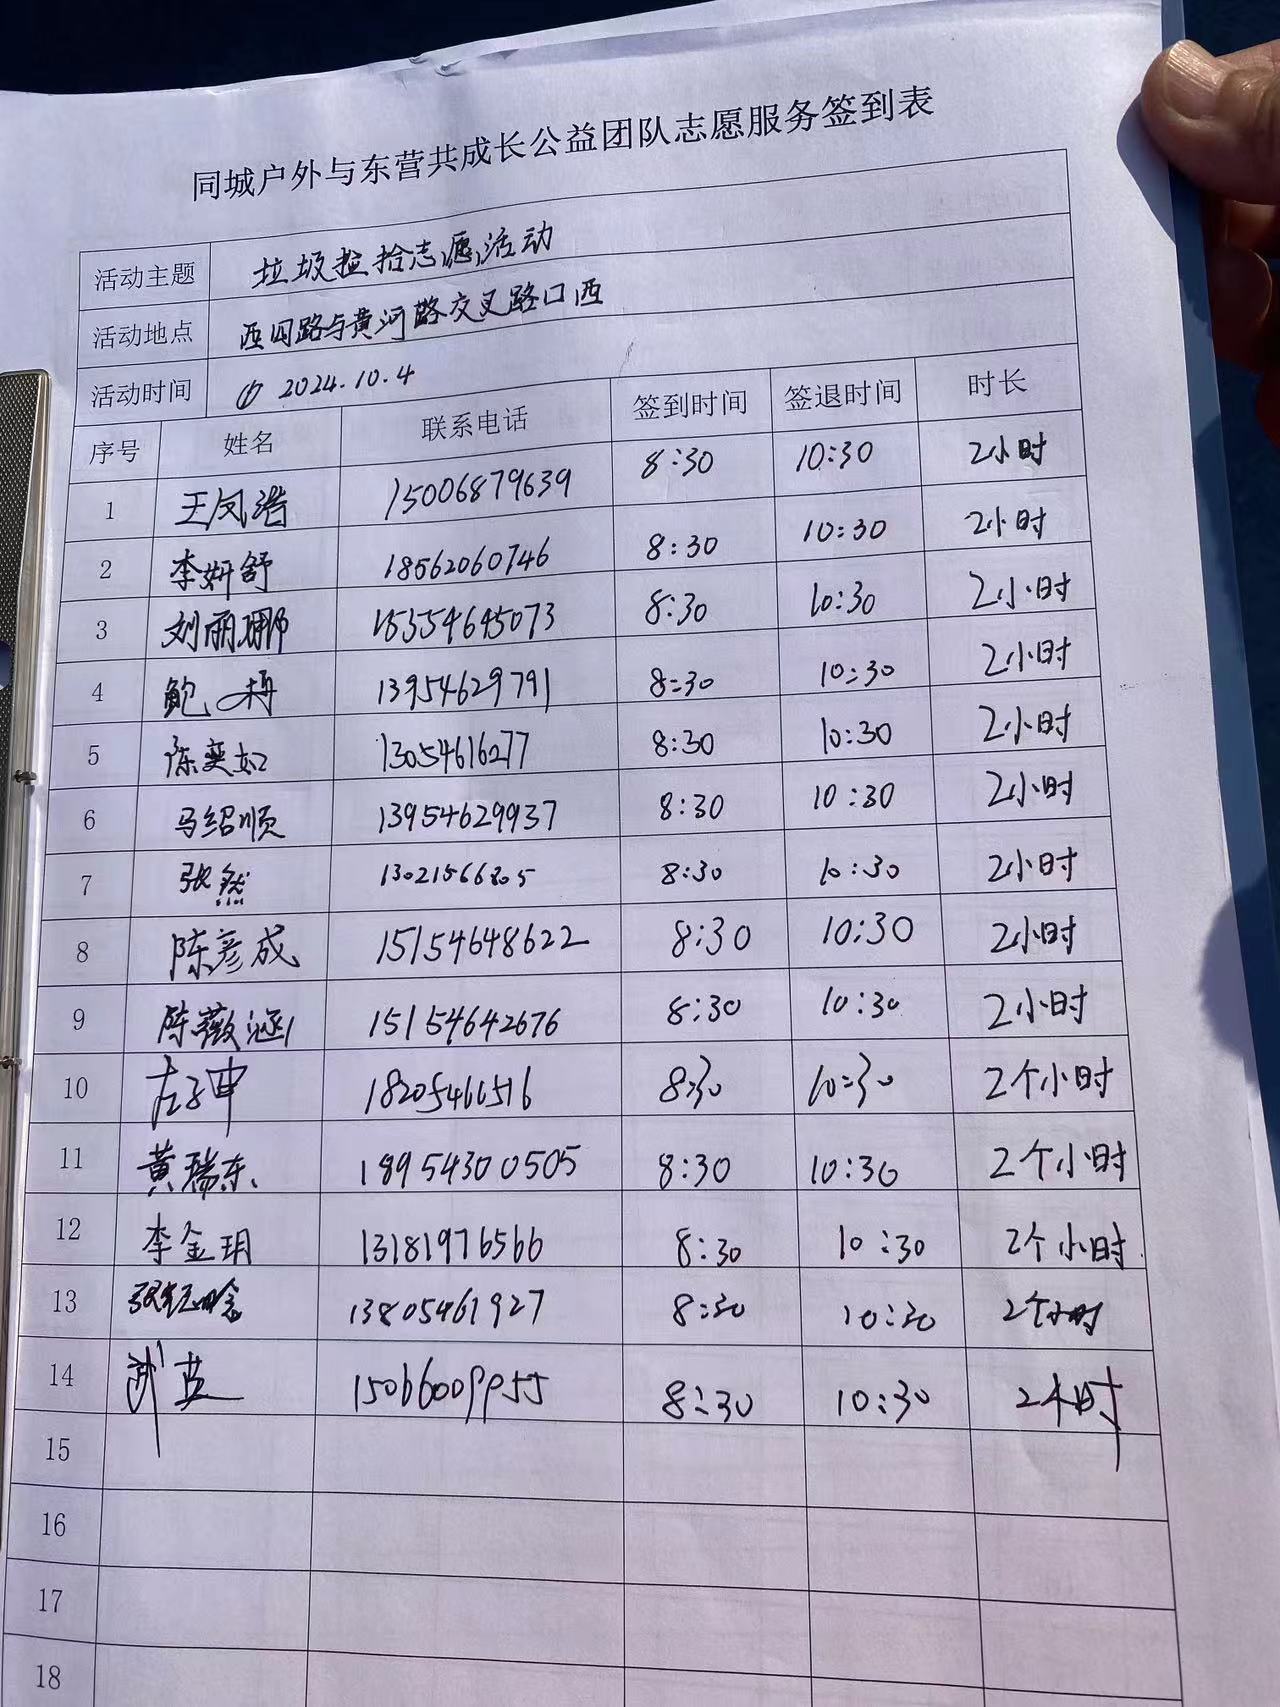 同城户外与东营共成长公益团队志愿服务签到表
活动主题 垃圾捡拾志愿活动
活动地点 西四路与黄河路交叉路口西
活动时间 ① 2024.10.4
序号 姓名 联系电话 签到时间 签退时间 时长
1 王凤浩 15006879639 8:30 10:30 2小时
2 李妍舒 18562060746 8:30 10:30 2小时
3 刘丽娜 18354645073 8:30 10:30 2小时
4 鲍冉 13954629791 8:30 10:30 2小时
5 陈奕如 13054616277 8:30 10:30 2小时
6 马绍顺 13954629937 8:30 10:30 2小时
7 张然 13021566805 8:30 10:30 2小时
8 陈彦成 15154648622 8:30 10:30 2小时
9 陈薇涵 15154642676 8:30 10:30 2小时
10 左子申 18205461516 8:30 10:30 2个小时
11 黄瑞东 18954300505 8:30 10:30 2个小时
12 李金玥 13181976566 8:30 10:30 2个小时
13 13805461927 8:30 10:30 2个小时
14 15066009955 8:30 10:30 2小时
15
16
17
18